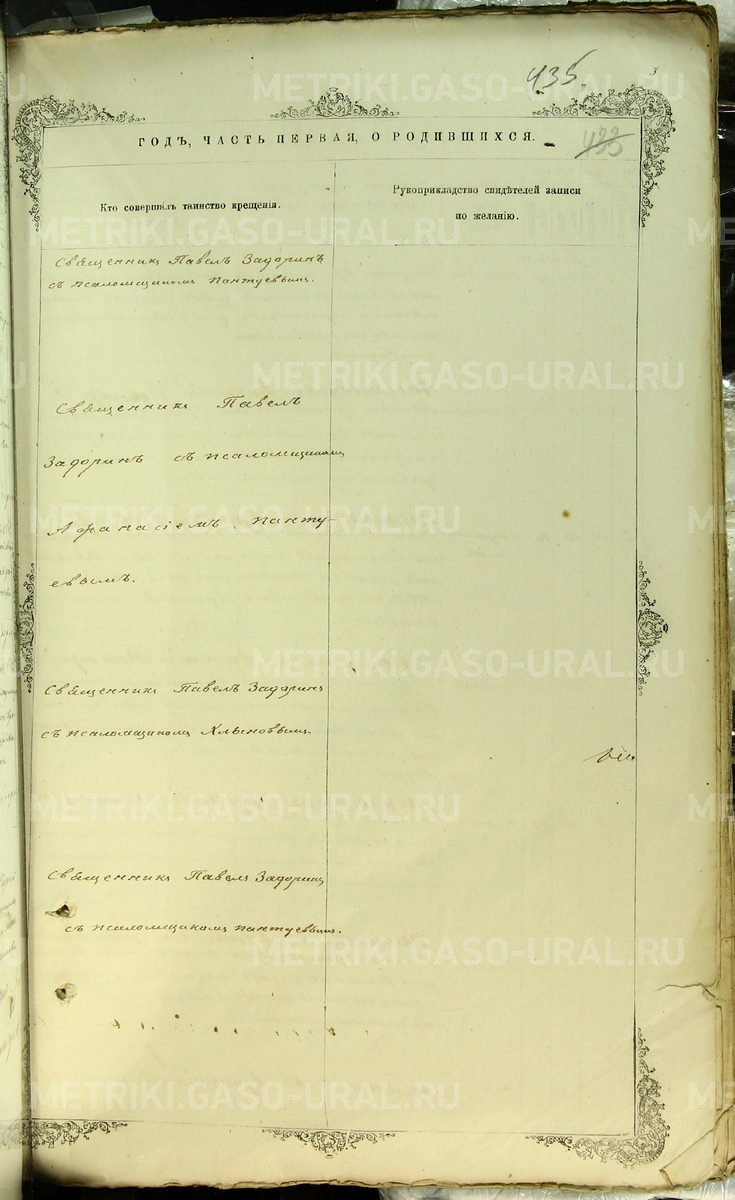 435.
3
ГОДЪ, ЧАСТЬ ПЕРВАЯ, О РОДИВШИХСЯ.
433
Кто совершалъ таинство крещенія.
Рукоприкладство свидѣтелей записи
по желанію.
Священникъ Павелъ Задоринъ
съ псаломщикомъ Пантуевымъ.
Священникъ Павелъ
Задоринъ съ псаломщикомъ
Афанасіемъ Панту-
евымъ.
Священникъ Павелъ Задоринъ
съ псаломщикомъ Клыновымъ.
Священникъ Павелъ Задоринъ
съ псаломщикомъ Пантуевымъ.
METRIKI.GASO-URAL.RU